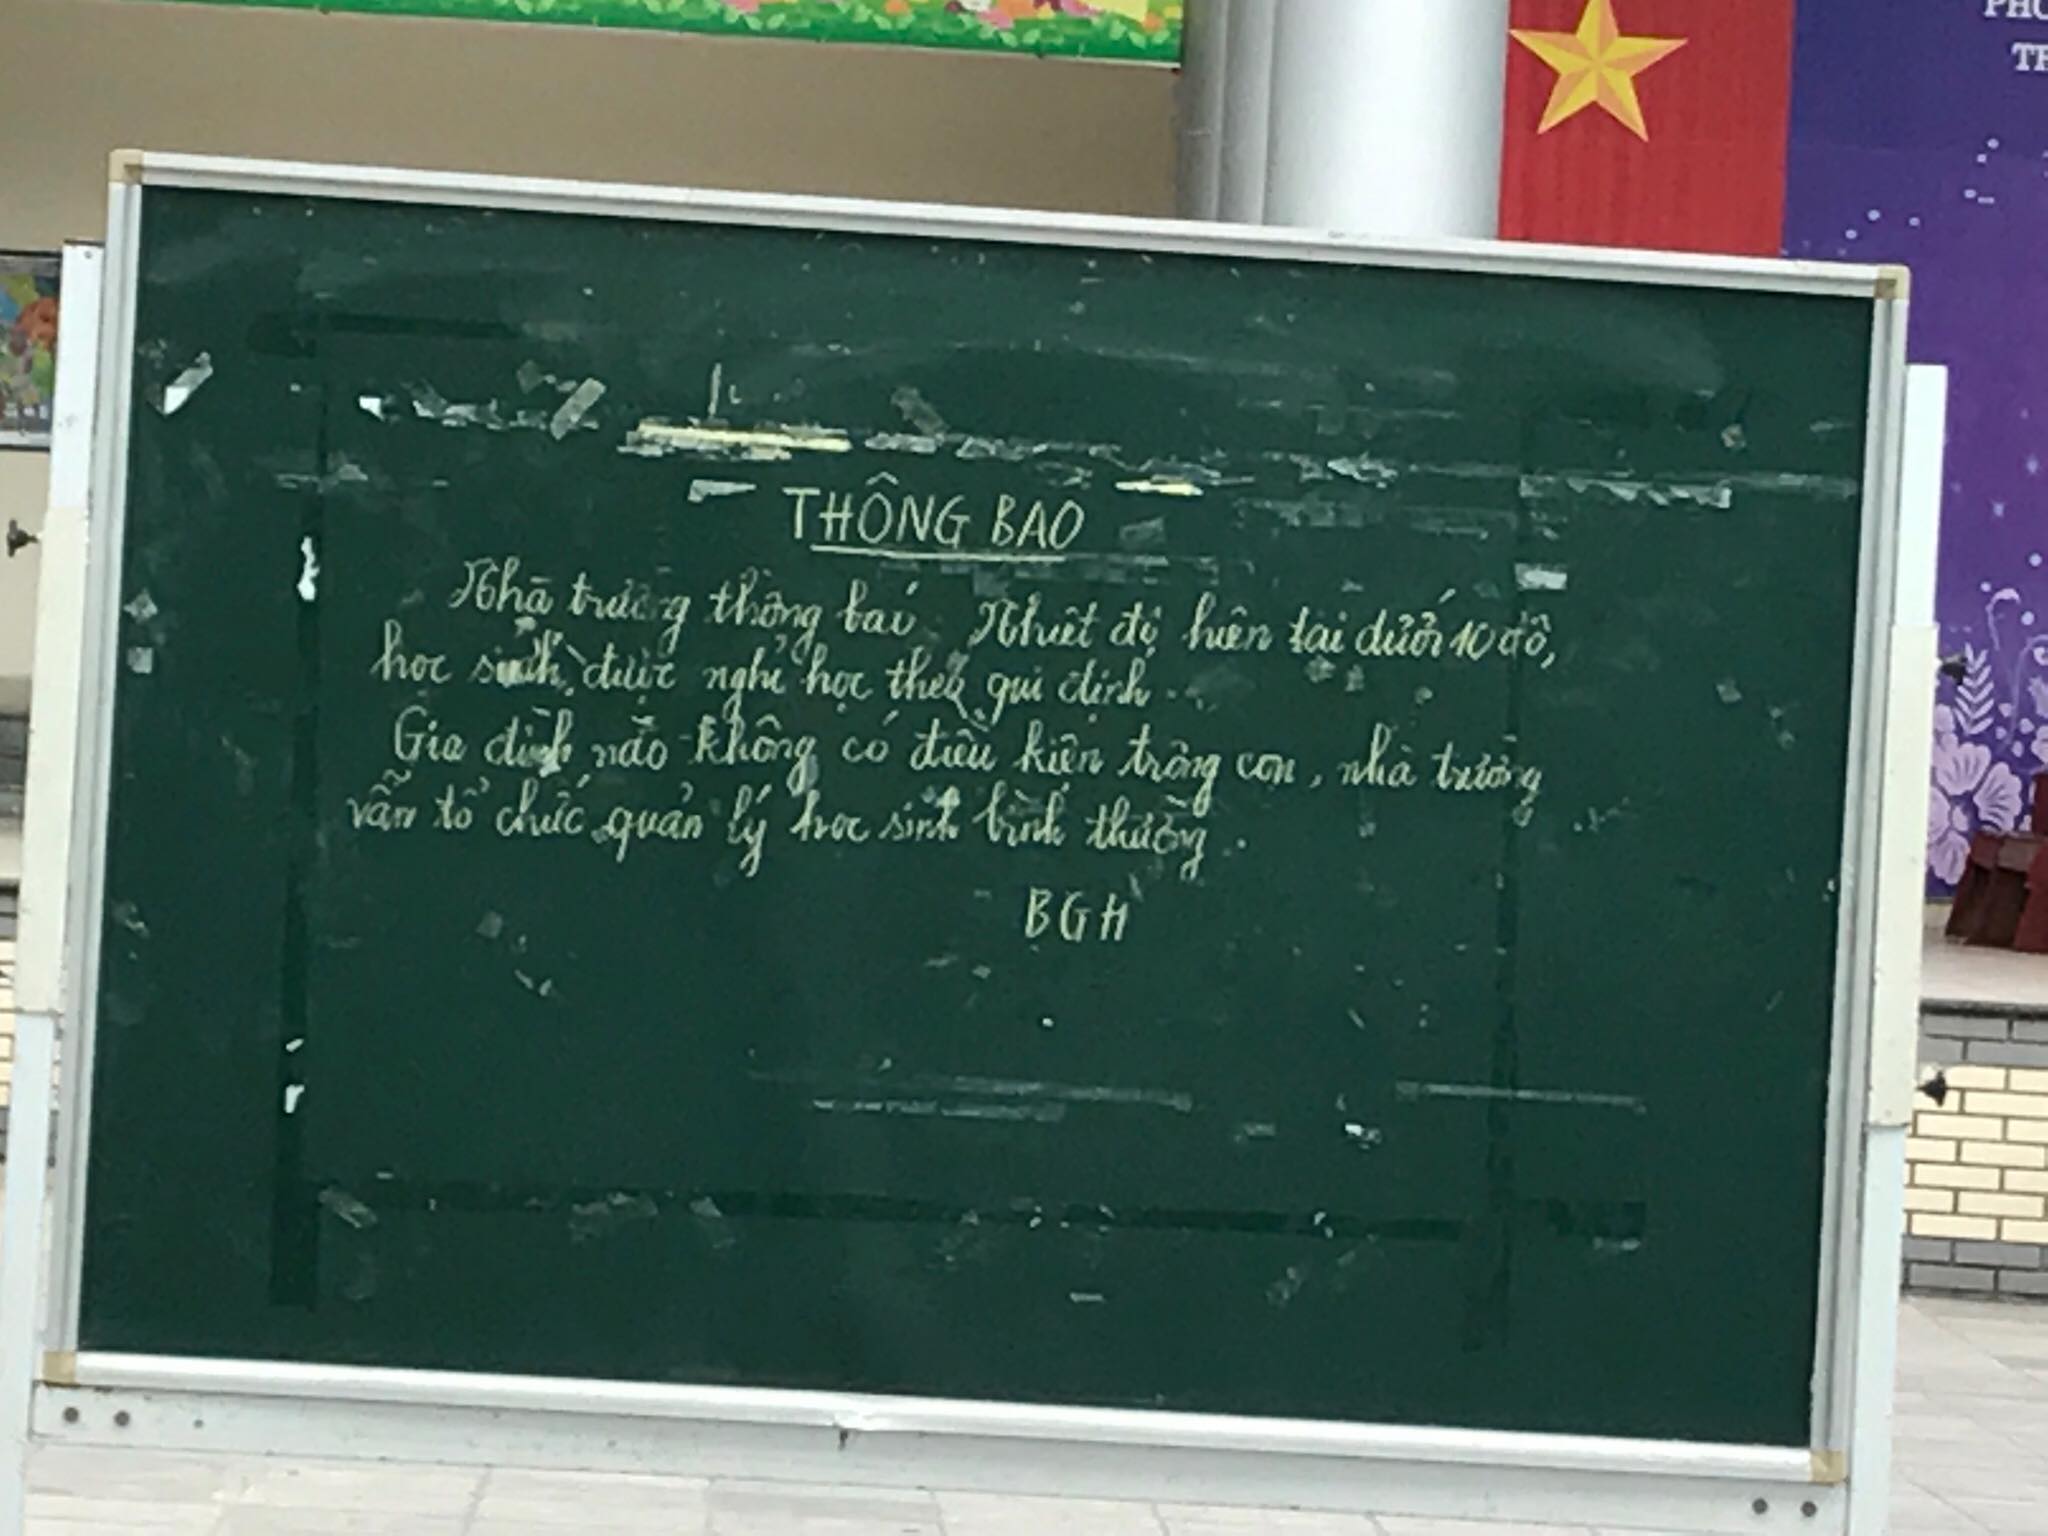 PHÒ
TR
THÔNG BÁO
Nhà trường thông báo Nhiệt độ hiện tại dưới 10 độ,
học sinh được nghỉ học theo qui định.
Gia đình nào không có điều kiện trông con, nhà trường
vẫn tổ chức quản lý học sinh bình thường.
BGH